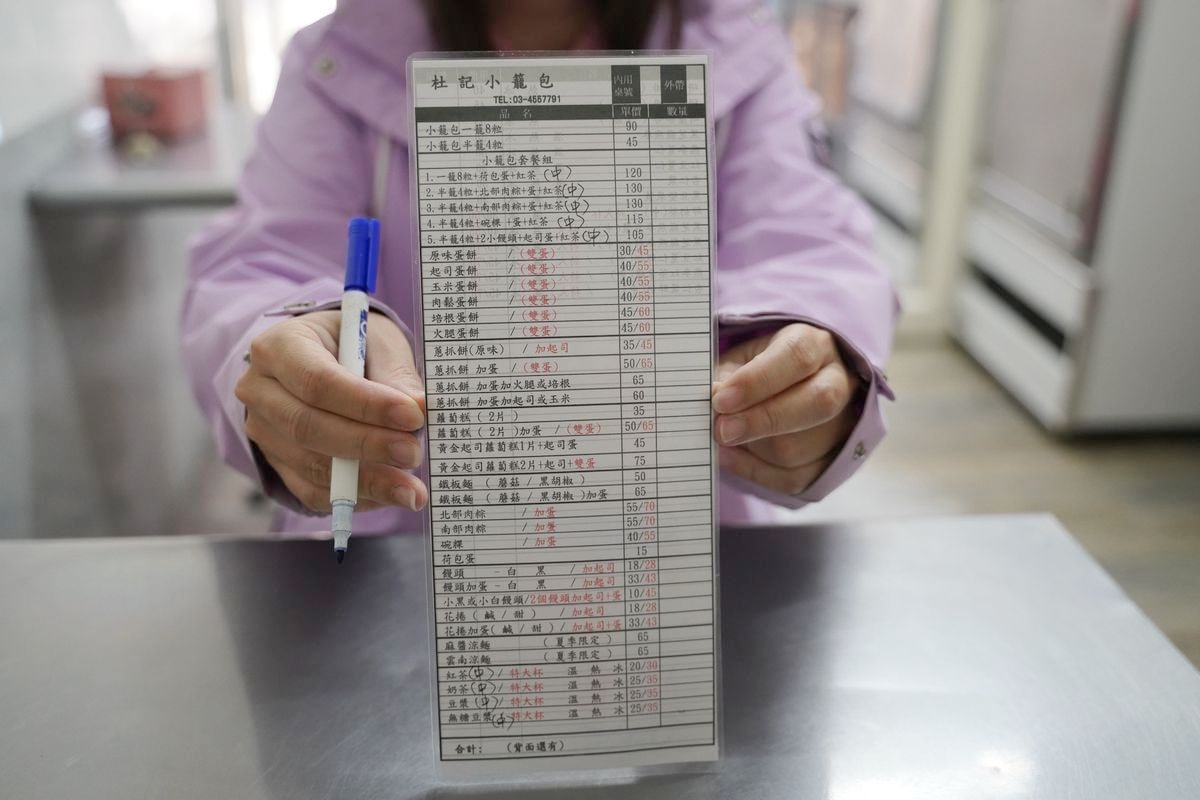 杜記小籠包 內用桌號 外帶
TEL:03-4557791
品名 單價 數量
小籠包一籠8粒 90
小籠包半籠4粒 45
小籠包套餐組
1.一籠8粒+荷包蛋+紅茶(中) 120
2.半籠4粒+北部肉粽+蛋+紅茶(中) 130
3.半籠4粒+南部肉粽+蛋+紅茶(中) 130
4.半籠4粒+碗粿+蛋+紅茶(中) 115
5.半籠4粒+2小饅頭+起司蛋+紅茶(中) 105
原味蛋餅 /(雙蛋) 30/45
起司蛋餅 /(雙蛋) 40/55
玉米蛋餅 /(雙蛋) 40/55
肉鬆蛋餅 /(雙蛋) 40/55
培根蛋餅 /(雙蛋) 45/60
火腿蛋餅 /(雙蛋) 45/60
蔥抓餅(原味) /加起司 35/45
蔥抓餅 加蛋 /(雙蛋) 50/65
蔥抓餅 加蛋加火腿或培根 65
蔥抓餅 加蛋加起司或玉米 60
蘿蔔糕(2片) 35
蘿蔔糕(2片)加蛋 /(雙蛋) 50/65
黃金起司蘿蔔糕1片+起司蛋 45
黃金起司蘿蔔糕2片+起司+雙蛋 75
鐵板麵 (蘑菇/黑胡椒) 50
鐵板麵 (蘑菇/黑胡椒)加蛋 65
北部肉粽 /加蛋 55/70
南部肉粽 /加蛋 55/70
碗粿 /加蛋 40/55
荷包蛋 15
饅頭 -白 黑 /加起司 18/28
饅頭加蛋-白 黑 /加起司 33/43
小黑或小白饅頭/2個饅頭加起司+蛋 10/45
花捲(鹹/甜) /加起司 18/28
花捲加蛋(鹹/甜)/加起司+蛋 33/43
麻醬涼麵 (夏季限定) 65
雲南涼麵 (夏季限定) 65
紅茶(中)/特大杯 溫 熱 冰 20/30
奶茶(中)/特大杯 溫 熱 冰 25/35
豆漿(中)/特大杯 溫 熱 冰 25/35
無糖豆漿(中)/特大杯 溫 熱 冰 25/35
合計: (背面還有)